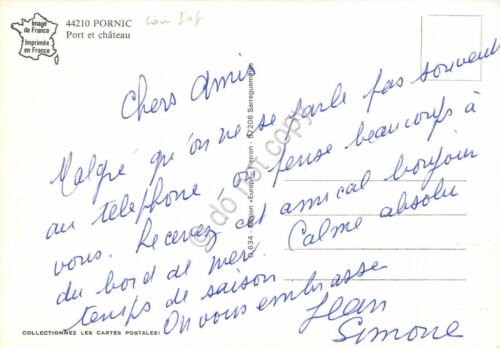 Image
de France
Imprimée
en France
44210 PORNIC
Port et château
Chers Amis
Malgré qu'on ne se parle pas souvent
au téléphone, on pense beaucoup à
vous. Recevez cet amical bonjour
du bord de mer. Calme absolu
temps de saison
On vous embrasse
Jean
Simone
634 - Edition «Europ» Pierron - 57206 Sarreguemines
COLLECTIONNEZ LES CARTES POSTALES!
do not copy